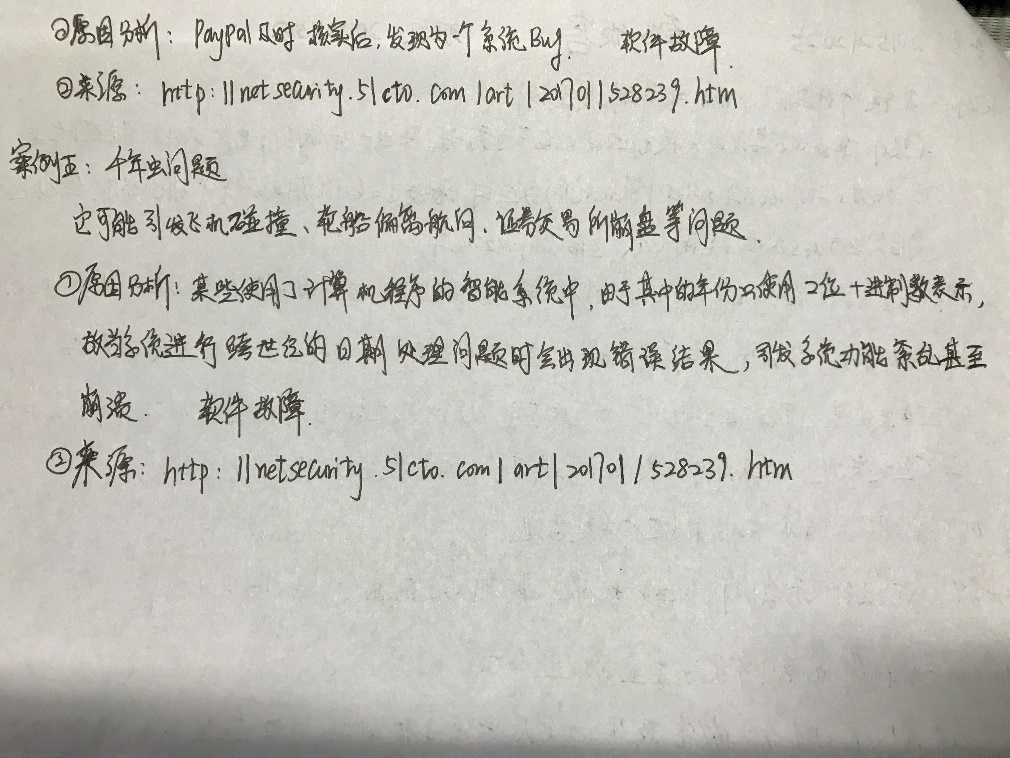 ①原因分析：Paypal及时核实后，发现为一个系统Bug. 软件故障.
②来源：http://netsecurity.51cto.com/art/201701/528239.htm
案例五：千年虫问题
它可能引发飞机碰撞、轮船偏离航向、证券交易所崩盘等问题.
①原因分析：某些使用了计算机程序的智能系统中，由于其中的年份只使用2位十进制数表示，
故当系统进行跨世纪的日期处理问题时会出现错误结果，引发系统功能紊乱甚至
崩溃. 软件故障.
②来源：http://netsecurity.51cto.com/art/201701/528239.htm